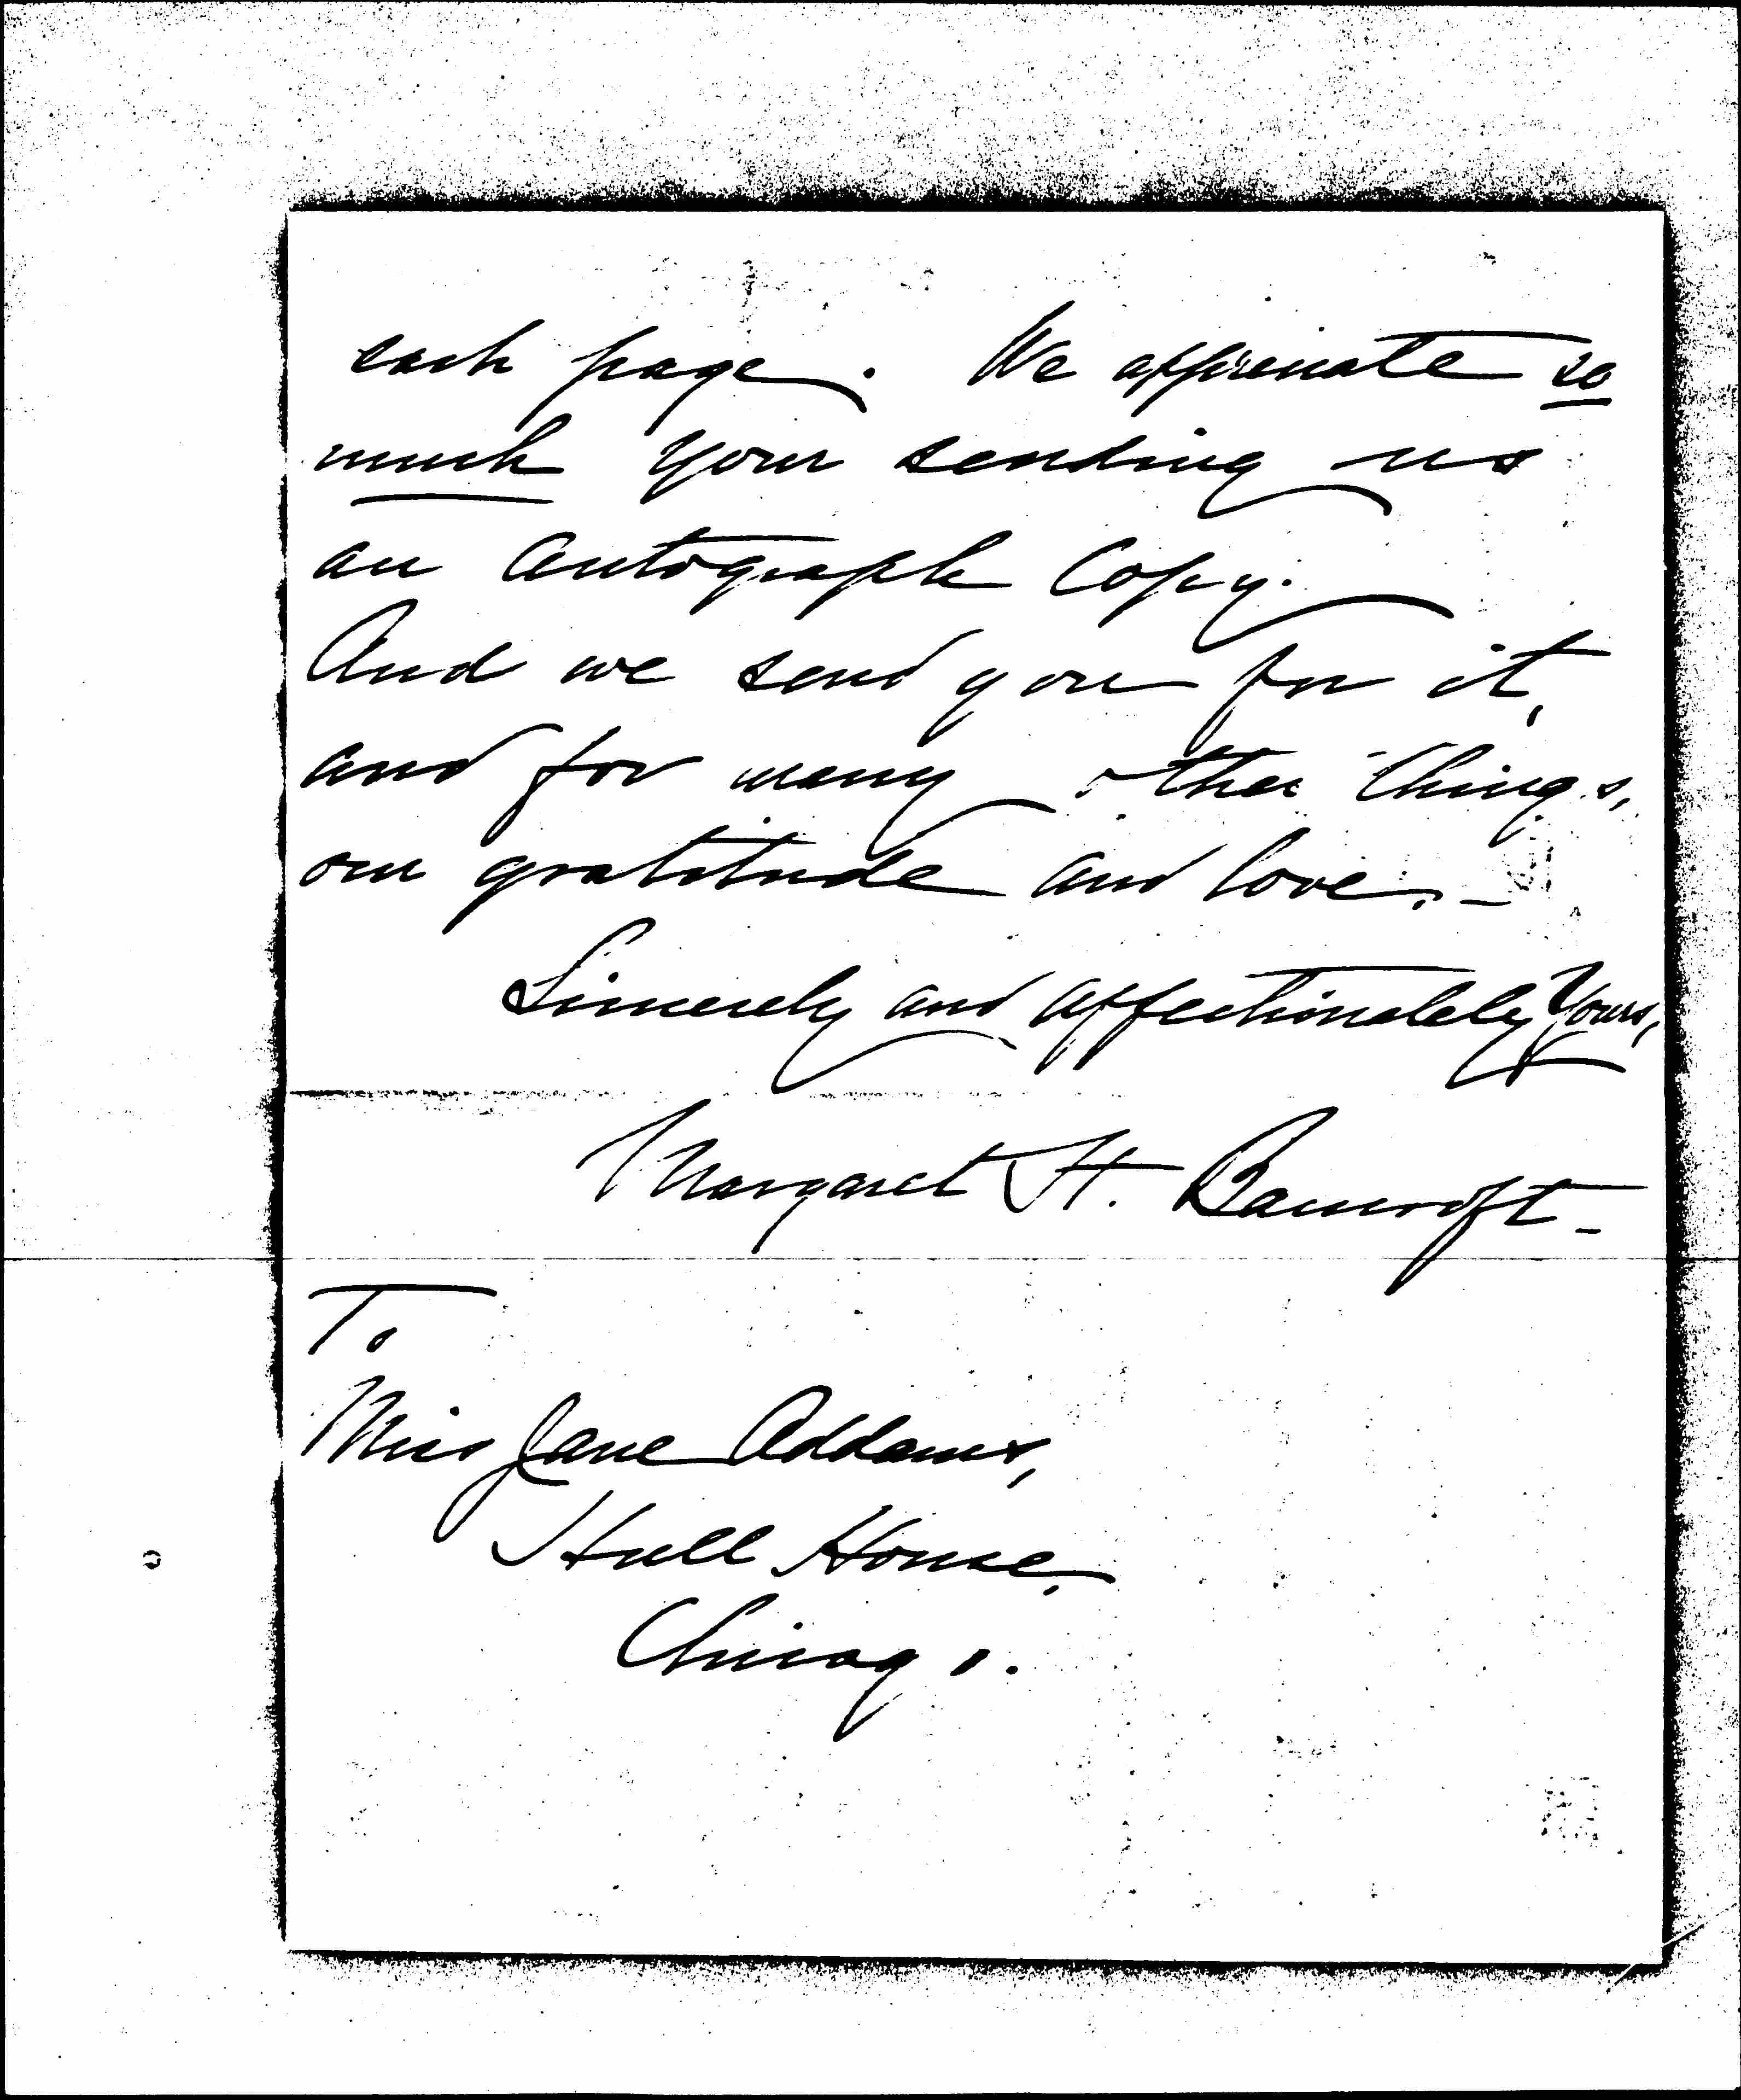 each page. We appreciate so
much your sending us
an autograph copy.
And we send you for it,
and for many other things,
our gratitude and love. -
Sincerely and affectionately yours,
Margaret H. Bancroft -
To
Miss Jane Addams,
Hull House,
Chicago.